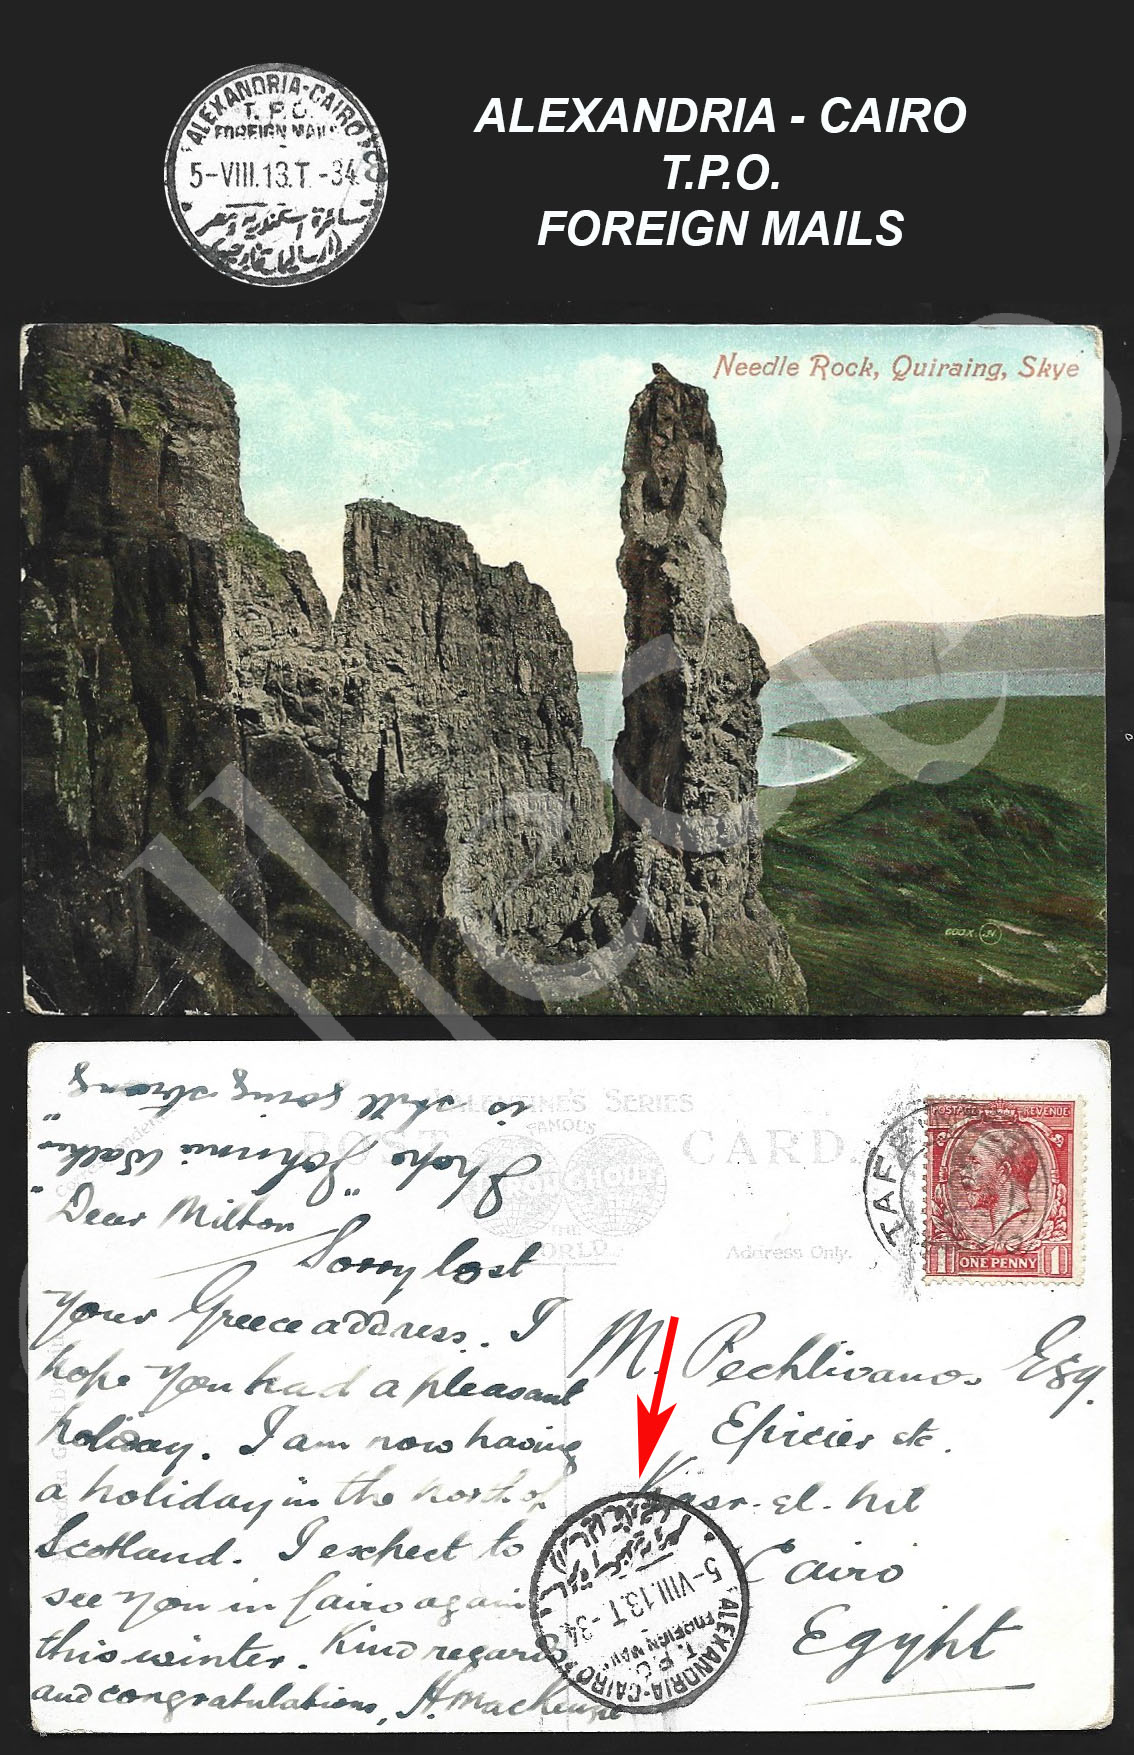 ALEXANDRIA-CAIRO
T.P.O.
FOREIGN MAILS
5-VIII.13.T.-34
ALEXANDRIA - CAIRO
T.P.O.
FOREIGN MAILS
Needle Rock, Quiraing, Skye
600X. JV
I hope "Johnnie Walker"
is still going strong
VALENTINE'S SERIES
POST CARD
FAMOUS
THROUGHOUT
THE
WORLD
Address Only.
POSTAGE REVENUE
ONE PENNY
1
1
TAF
Dear Milton
Sorry lost
your Greece address. I
hope you had a pleasant
holiday. I am now having
a holiday in the north of
Scotland. I expect to
see you in Cairo again
this winter. Kind regards
and congratulations, H. Mackenzie
M. Pechlivanos Esq.
Epicier etc.
Kasr-el-Nil
Cairo
Egypt
5-VIII.13.T.-34
ALEXANDRIA-CAIRO
T.P.O.
FOREIGN MAILS